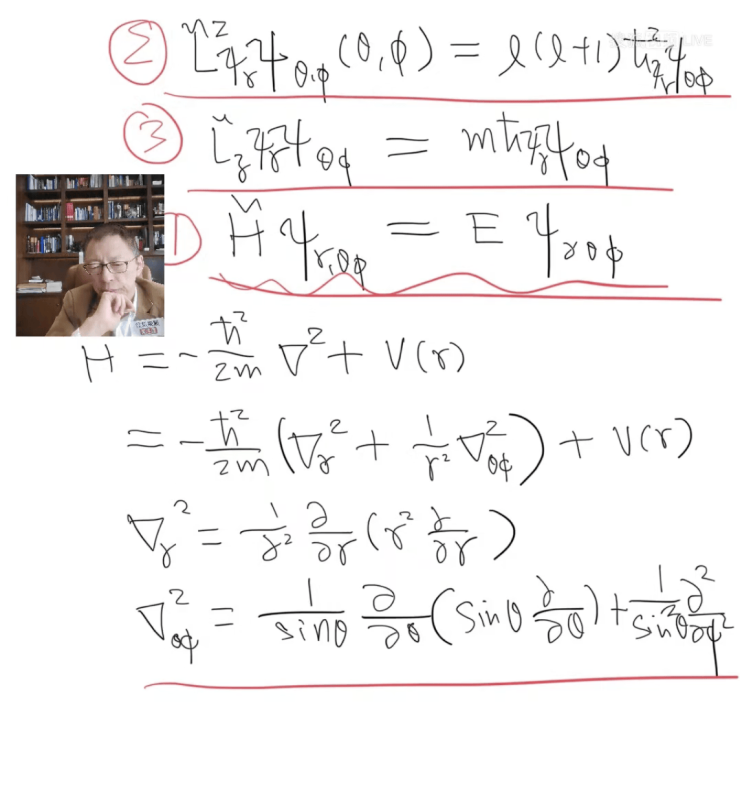 ② L̂²ψᵣψ_θ,φ(θ,φ) = ℓ(ℓ+1)ħ²ψᵣψ_θφ
③ L̂_zψᵣψ_θφ = mħψᵣψ_θφ
① Ĥψ_r,θφ = Eψ_rθφ
H = -ħ²/2m ∇² + V(r)
= -ħ²/2m (∇ᵣ² + 1/r² ∇²_θφ) + V(r)
∇ᵣ² = 1/r² ∂/∂r (r² ∂/∂r)
∇²_θφ = 1/sinθ ∂/∂θ (sinθ ∂/∂θ) + 1/sin²θ ∂²/∂φ²